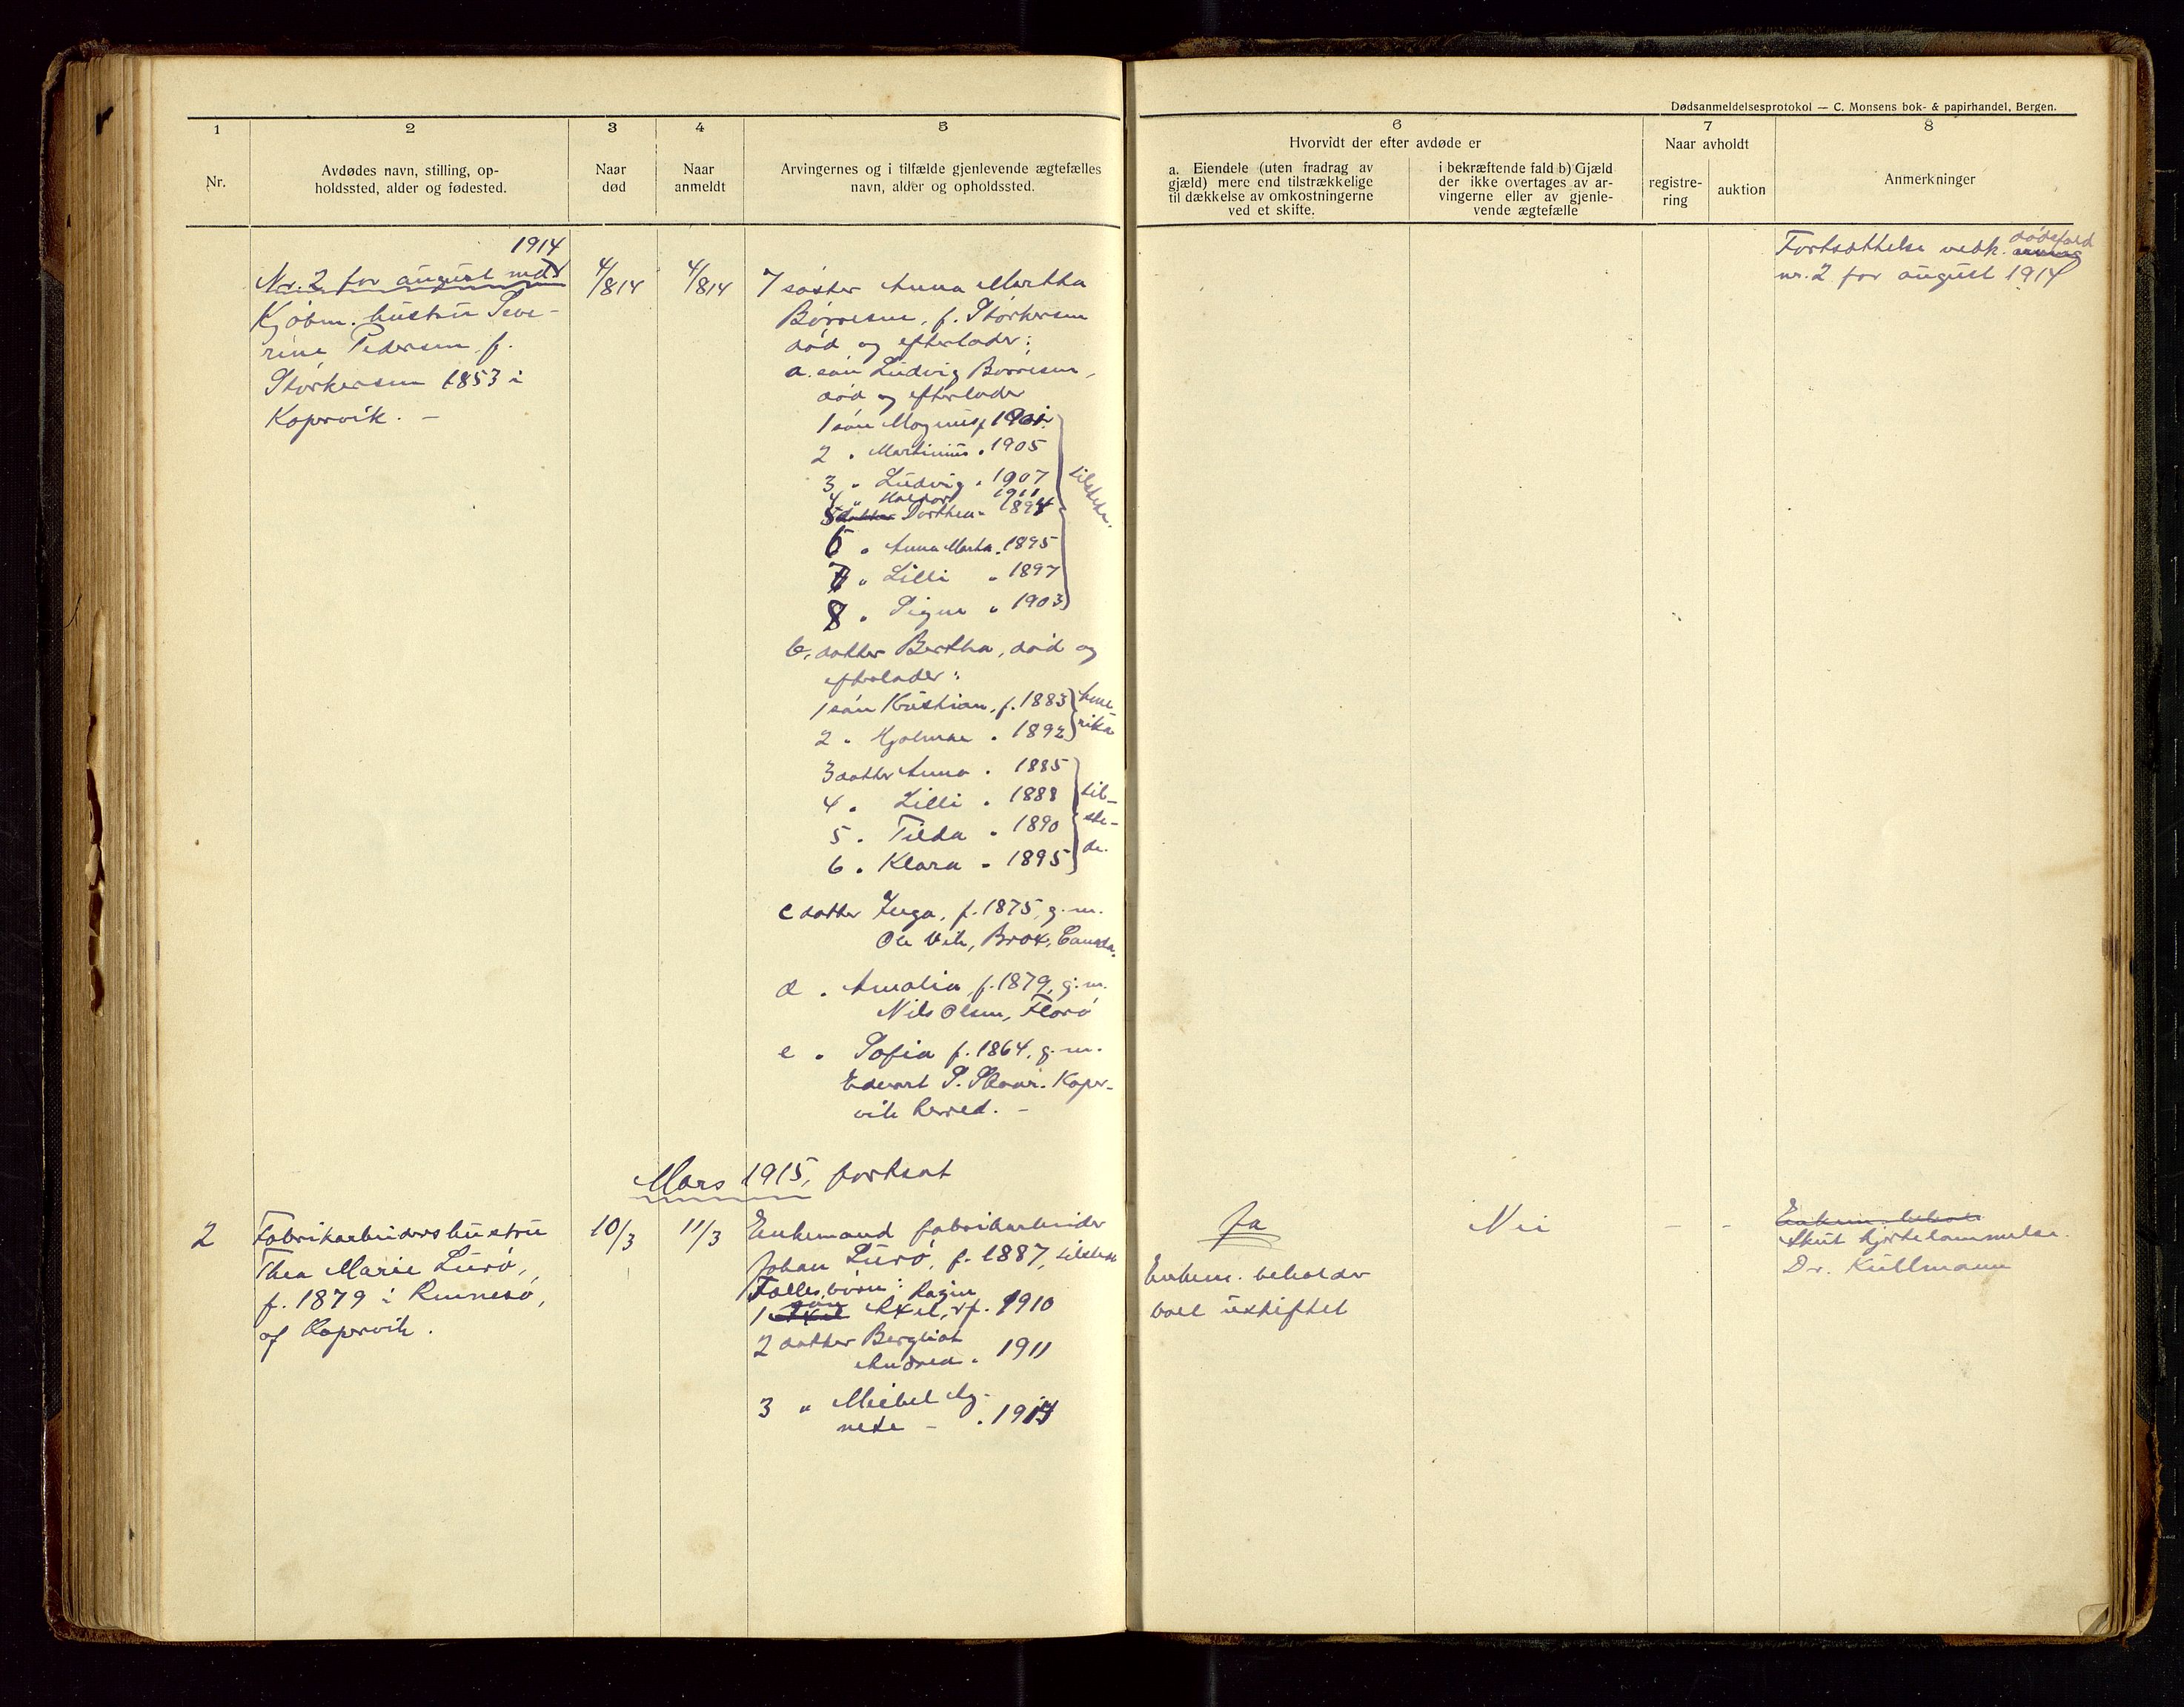 Dødsanmeldelsesprotokol — C. Monsens bok- & papirhandel, Bergen.
1
2
3
4
5
6
7
8
Nr.
Avdødes navn, stilling, op-
holdssted, alder og fødested.
Naar
død
Naar
anmeldt
Arvingernes og i tilfælde gjenlevende ægtefælles
navn, alder og opholdssted.
Hvorvidt der efter avdøde er
a. Eiendele (uten fradrag av
gjæld) mere end tilstrækkelige
til dækkelse av omkostningerne
ved et skifte.
i bekræftende fald b) Gjæld
der ikke overtages av ar-
vingerne eller av gjenle-
vende ægtefælle
Naar avholdt
registre-
ring
auktion
Anmerkninger
1914
Nr. 2 for august mds
Kjøbm. hustru Seve-
rine Pedersen f.
Størkersen 1853 i
Kopervik. –
4/8 14
4/8 14
7 søster Anna Martha
Børresen, f. Størkersen
død og efterlader:
a. søn Ludvig Børresen,
død og efterlader
1 søn Magnus f. 1901
2 " Martinius " 1905
3 " Ludvig " 1907
4 " Halvor 1911
5 datter Dorthea " 1894
6 " Anna Marta " 1895
7 " Lilli " 1897
8 " Signe " 1903
tilstede.
b. datter Bertha, død og
efterlader:
1 søn Kristian, f. 1883
2 " Hjalmar " 1892
Ame-
rika
3 datter Anna " 1885
4 " Lilli " 1888
5 " Tilda " 1890
6 " Klara " 1895
til-
ste-
de.
c datter Inga, f. 1875, g. m.
Ole Vik, Canada.
d " Amalia, f. 1879, g. m.
Nils Olsen, Florø
e " Sofia f. 1864, g. m.
Edvart S. Skaar. Koper-
vik herred. –
Fortsættelse vedk. dødsfald
nr. 2 for august 1914
Mars 1915, fortsat
2
Fabrikarbeiders hustru
Thea Marie Lurø,
f. 1879 i
af Kopervik.
10/3
11/3
Enkemand fabrikarbeider
Johan Lurø, f. 1887, tilstede
Fælles børn:
1 søn Axel, f. 1910
2 datter Bergliot
Andrea " 1911
3 " Meibel Ag-
nete – " 1914
Ja
Enkem. beholder
boet uskiftet
Nei
–
–
Enkem. behold
Akut hjertelammelse.
Dr. Kullmann